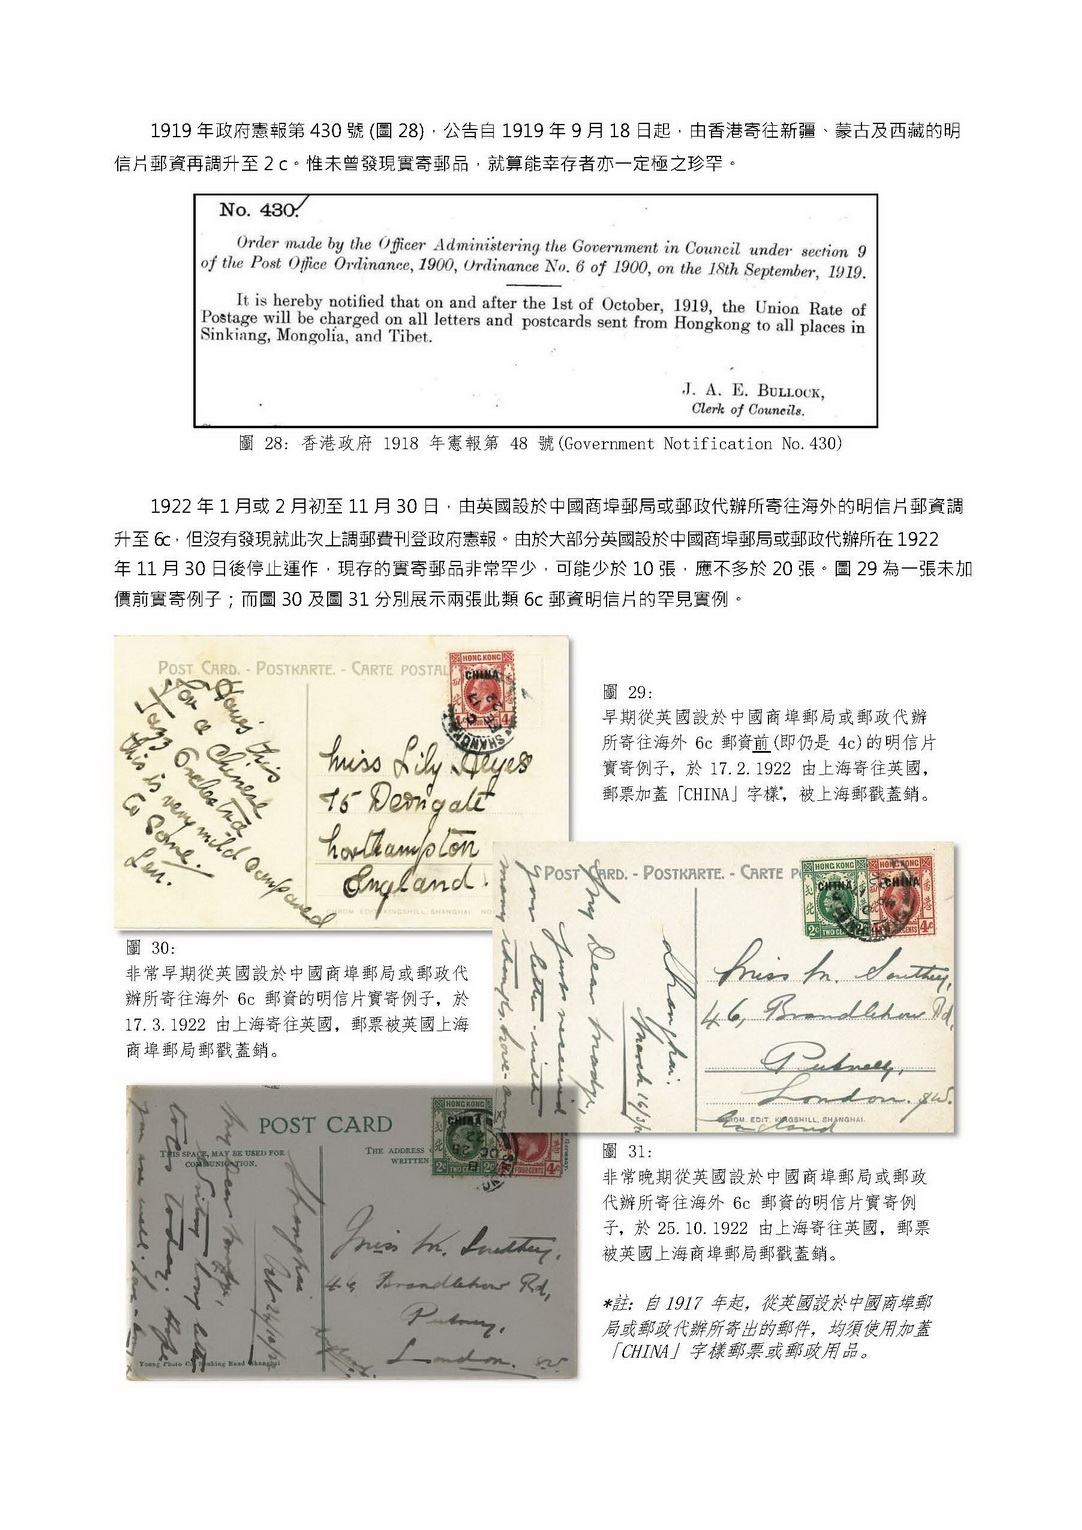 1919 年政府憲報第 430 號 (圖 28)，公告自 1919 年 9 月 18 日起，由香港寄往新疆、蒙古及西藏的明
信片郵資再調升至 2 c。惟未曾發現實寄郵品，就算能幸存者亦一定極之珍罕。
No. 430.
Order made by the Officer Administering the Government in Council under section 9
of the Post Office Ordinance, 1900, Ordinance No. 6 of 1900, on the 18th September, 1919.
It is hereby notified that on and after the 1st of October, 1919, the Union Rate of
Postage will be charged on all letters and postcards sent from Hongkong to all places in
Sinkiang, Mongolia, and Tibet.
J. A. E. BULLOCK,
Clerk of Councils.
圖 28: 香港政府 1918 年憲報第 48 號(Government Notification No.430)
1922 年 1 月或 2 月初至 11 月 30 日，由英國設於中國商埠郵局或郵政代辦所寄往海外的明信片郵資調
升至 6c，但沒有發現就此次上調郵費刊登政府憲報。由於大部分英國設於中國商埠郵局或郵政代辦所在 1922
年 11 月 30 日後停止運作，現存的實寄郵品非常罕少，可能少於 10 張，應不多於 20 張。圖 29 為一張未加
價前實寄例子；而圖 30 及圖 31 分別展示兩張此類 6c 郵資明信片的罕見實例。
POST CARD. - POSTKARTE. - CARTE POSTAL
HONG KONG
CHINA
Here's this
for a Chinese
Jazz Orchestra
this is very mild compared
to some.
Len.
Miss Lily Heyes
75 Derngate
Northampton
England.
KINGSHILL, SHANGHAI.
圖 29:
早期從英國設於中國商埠郵局或郵政代辦
所寄往海外 6c 郵資前(即仍是 4c)的明信片
實寄例子，於 17.2.1922 由上海寄往英國，
郵票加蓋「CHINA」字樣*，被上海郵戳蓋銷。
圖 30:
非常早期從英國設於中國商埠郵局或郵政代
辦所寄往海外 6c 郵資的明信片實寄例子，於
17.3.1922 由上海寄往英國，郵票被英國上海
商埠郵局郵戳蓋銷。
POST CARD. - POSTKARTE. - CARTE P
HONG KONG
HONG KONG
CHINA
CHINA
2c TWO CE
CENTS 4c
Shanghai.
March 16/3/
My Dear Madge,
Just received
your letter with
many thanks, love
Miss M. Southey,
46, Brandlehow Rd,
Putney,
London. SW.
England
EDIT. KINGSHILL, SHANGHAI.
POST CARD
THIS SPACE, MAY BE USED FOR
COMMUNICATION.
THE ADDRESS
WRITTEN
HONG KONG
CHINA
FOUR CENTS 4c
Shanghai
My Dear Madge,
Writing long letter
to you today. Hope
you are well. Love
Miss M. Southey,
46 Brandlehow Rd,
Putney,
London. SW.
Young Photo Co. Nanking Road Shanghai
圖 31:
非常晚期從英國設於中國商埠郵局或郵政
代辦所寄往海外 6c 郵資的明信片實寄例
子，於 25.10.1922 由上海寄往英國，郵票
被英國上海商埠郵局郵戳蓋銷。
*註：自 1917 年起，從英國設於中國商埠郵
局或郵政代辦所寄出的郵件，均須使用加蓋
「CHINA」字樣郵票或郵政用品。